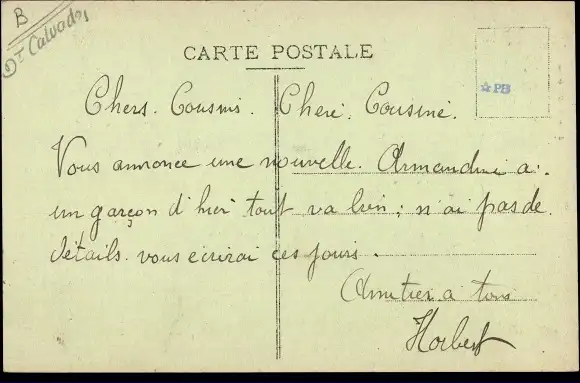 B
Dt Calvados
CARTE POSTALE
☆PB
Chers. Cousins. Cheré. Cousine.
Vous annonce une nouvelle. Armandine a
un garçon d'hier tout va bien ; n'ai pas de
détails. vous écrirai ces jours.
Amitiés à tous